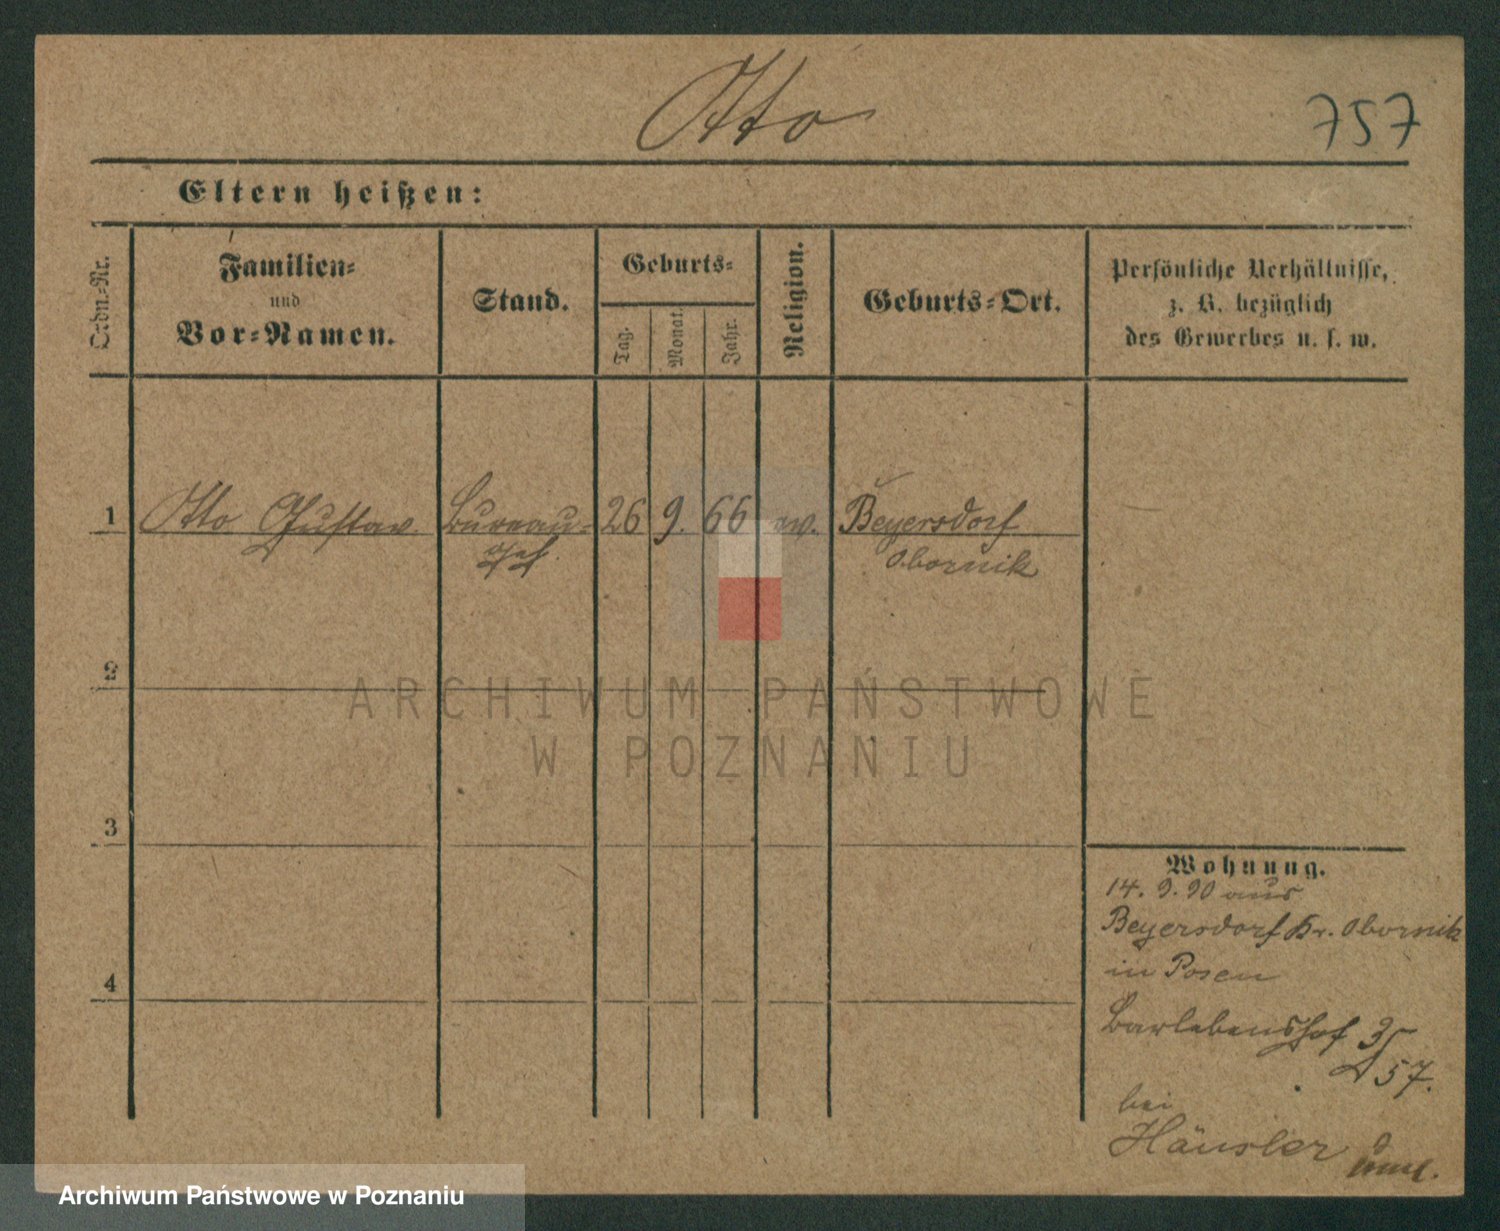 Otto
757
Eltern heißen:
Ordn.-Nr.
Familien-
und
Vor-Namen.
Stand.
Geburts-
Tag.
Monat.
Jahr.
Religion.
Geburts-Ort.
Persönliche Verhältnisse,
z. B. bezüglich
des Gewerbes u. s. w.
1 Otto Gustav Bureau- 26 9. 66 ev. Beyersdorf
Obornik
2
3
4
Wohnung.
14. 9. 90 aus
Beyersdorf Kr. Obornik
in Posen
Barlebenshof 35
57.
bei
Häusler
ARCHIWUM PAŃSTWOWE
W POZNANIU
Archiwum Państwowe w Poznaniu